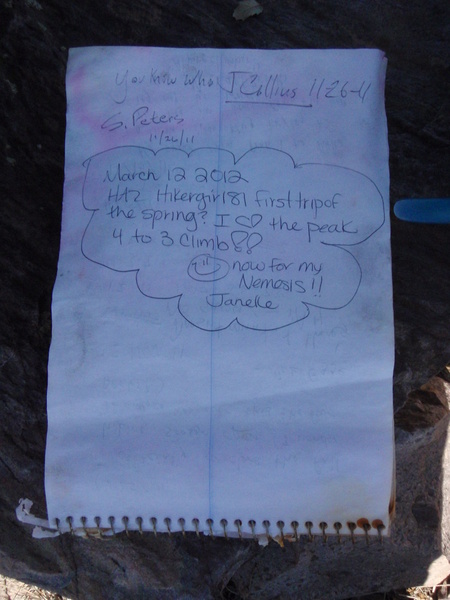 You know who J Collins 11-26-11
S. Peters
11/26/11
March 12 2012
Hikergirl81 first trip of
the spring? I ♡ the peak
4 to 3 climb!!
now for my
Nemesis!!
Janelle